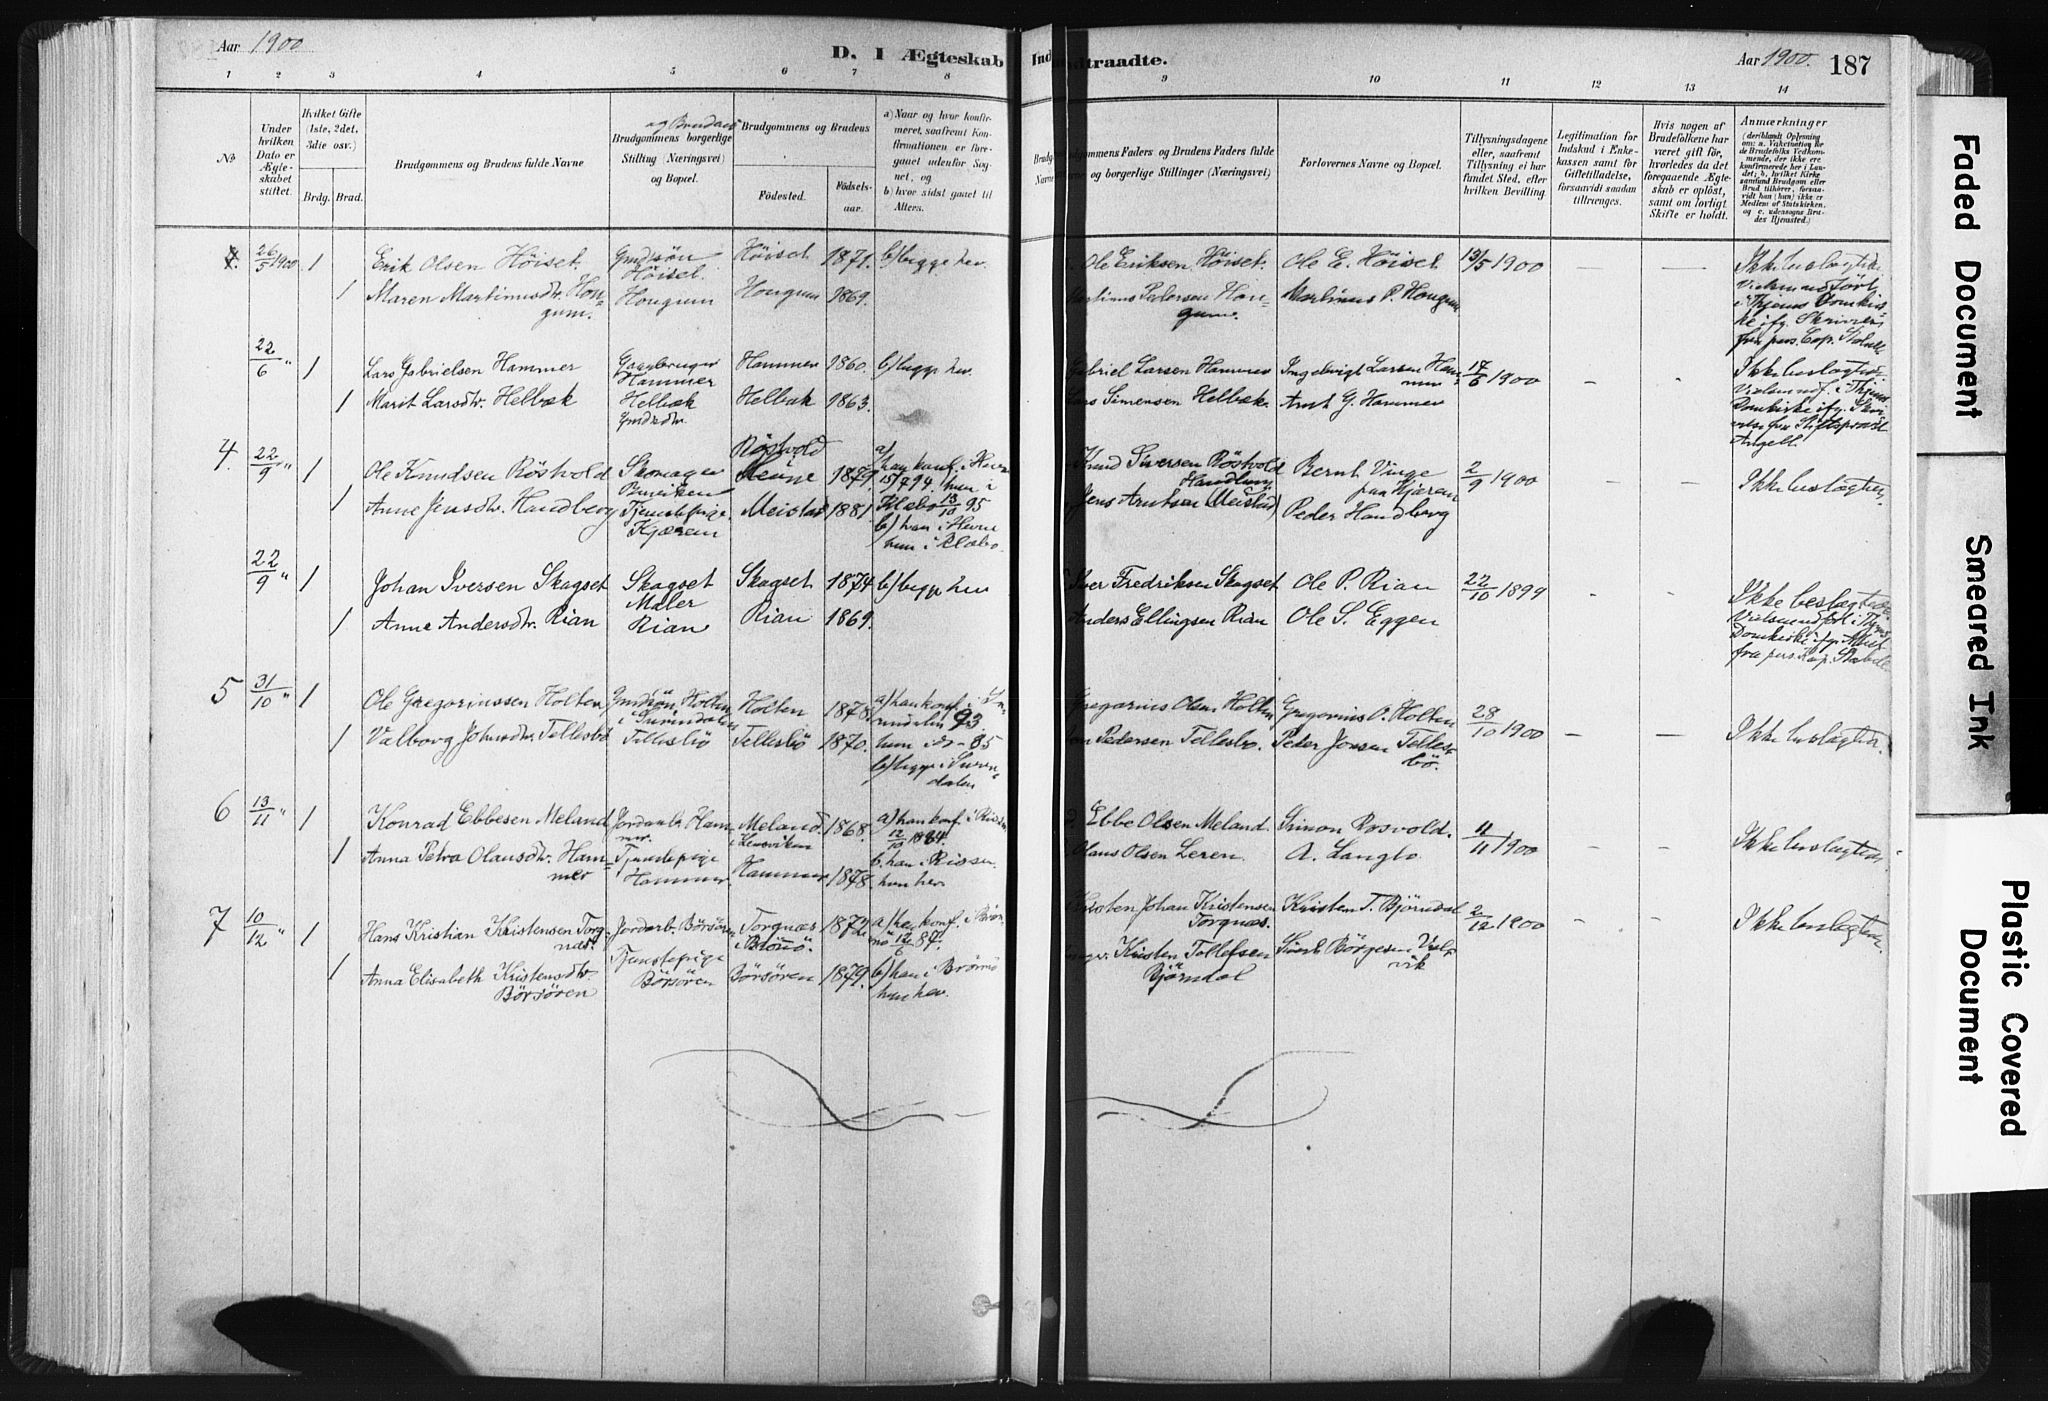 Aar 1900
D. I Ægteskab
Indtraadte.
Aar 1900.
187
1 2 3 4 5 6 7 8 9 10 11 12 13 14
No
Under hvilken Dato er Ægteskabet stiftet.
Hvilket Gifte (1ste, 2det, 3die osv.)
Brdg. Brud.
Brudgommens og Brudens fulde Navne
og Brudens
Brudgommens borgerlige Stilling (Næringsvei) og Bopæl.
Brudgommens og Brudens
Fødested.
Fødselsaar.
a) Naar og hvor konfirmeret, saafremt Konfirmationen er foregaaet udenfor Sognet, og
b) hvor sidst gaaet til Alters.
Brudgommens Faders og Brudens Faders fulde Navne og borgerlige Stillinger (Næringsvei)
Forlovernes Navne og Bopæl.
Tillysningsdagene eller, saafremt Tillysning ei har fundet Sted, efter hvilken Bevilling
Legitimation for Indskud i Enkekassen samt for Giftetilladelse, forsaavidt saadan tiltrænges.
Hvis nogen af Brudefolkene har været gift før, hvorledes da det foregaaende Ægteskab er opløst, samt om lovligt Skifte er holdt.
Anmærkninger
(deriblandt Oplysning om: a. Vakcination for de Brudefolks Vedkommende, der ikke ere konfirmerede her i Landet; b. hvilket Kirkesamfund Brudgom eller Brud tilhører, forsaavidt han (hun) ikke er Medlem af Statskirken, og c. udensogns Brudes Hjemsted.
26/5 1900 1 Erik Olsen Höiset Gmdsön Höiset Höiset 1871. b) begge her. Ole Eriksen Höiset. Ole E. Höiset 13/5 1900 — — Ikke beslægtede
1 Maren Martinusdtr. Hougum. Hougum Hougum 1869. Martinus Pedersen Hougum. Martinus P. Hougum
22/6 " 1 Lars Gabrielsen Hammer Gaardbruger Hammer Hammer 1860. b) begge her. Gabriel Larsen Hammer Ingebrigt Larsen Hammer 17/6 1900 - - Ikke beslægtede
1 Marit Larsdtr. Helbæk Helbæk Gmdsdtr. Helbæk 1863. Lars Simensen Helbæk. Arnt G. Hammer
4. 22/9 " 1 Ole Knudsen Röstvold Skomager Röstvold 1879. a) han konf. i Hevne Knud Sivertsen Röstvold Bernt Vinge fra Kjæren 2/9 1900 - - Ikke beslægtede.
1 Anne Jensdtr. Handberg Tjenestepige Kjæren Meistad 1881. Klæbo 13/10 95 b) han i Hevne hun i Klæbo. Jens Arntsen Meistad Peder Handberg
22/9 " 1 Johan Iversen Skagset Skagset Maler Skagset 1874 b) begge her Iver Fredriksen Skagset Ole P. Rian 22/10 1899 - - Ikke beslægtede.
1 Anne Andersdtr. Rian Rian Rian 1869. Anders Ellingsen Rian Ole S. Eggen
5 31/10 " 1 Ole Gregoriussen Holten Gmdsön Holten i Surendalen Holten 1878. a) han konf. i Surendalen 93 Gregorius Olsen Holten Gregorius O. Holten 28/10 1900 - - Ikke beslægtede.
1 Valborg Johnsdtr. Tellesbö Tellesbö Tellesbö 1870. hun - 85 b) begge i Surendalen Jon Pedersen Tellesbö. Peder Jonsen Tellesbö.
6 13/11 " 1 Konrad Ebbesen Meland Jordarb. Hammer. Meland i Lensviken 1868. a) han konf. i Rissen 12/10 1884. Ebbe Olsen Meland. Simon Rosvold. 11/11 1900 - - Ikke beslægtede
1 Anna Petra Olausdtr. Hammer Tjenestepige Hammer. Hammer 1878. b. han i Rissen. hun her Olaus Olsen Leren. A. Langlo
7 10/12 " 1 Hans Kristian Kristensen Torgnæs. Jordarb. Börsören Torgnæs i Brönö. 1872 a) han konf. i Brönö 12/6 87. Kristen Johan Kristensen Torgnæs. Kristen T. Björndal 2/12 1900 - - Ikke beslægtede.
1 Anna Elisabeth Kristensdtr. Börsören Tjenestepige Börsören Börsören 1879. b) han i Brönö hun her. Kristen Tollefsen Björndal Sivert Börgesen Vestvik
Faded Document
Smeared Ink
Plastic Covered Document